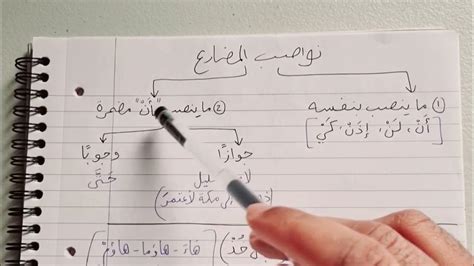 نواصب المضارع
① ما ينصب بنفسه
[أَنْ، لَنْ، إِذَنْ، كَيْ]
② ما ينصب "بأَنْ" مضمرة
جوازًا
وجوبًا
حَتَّى
مكة لأعتمرَ)
[هَاءَ - هَاؤُمَا - هَاؤُمْ]